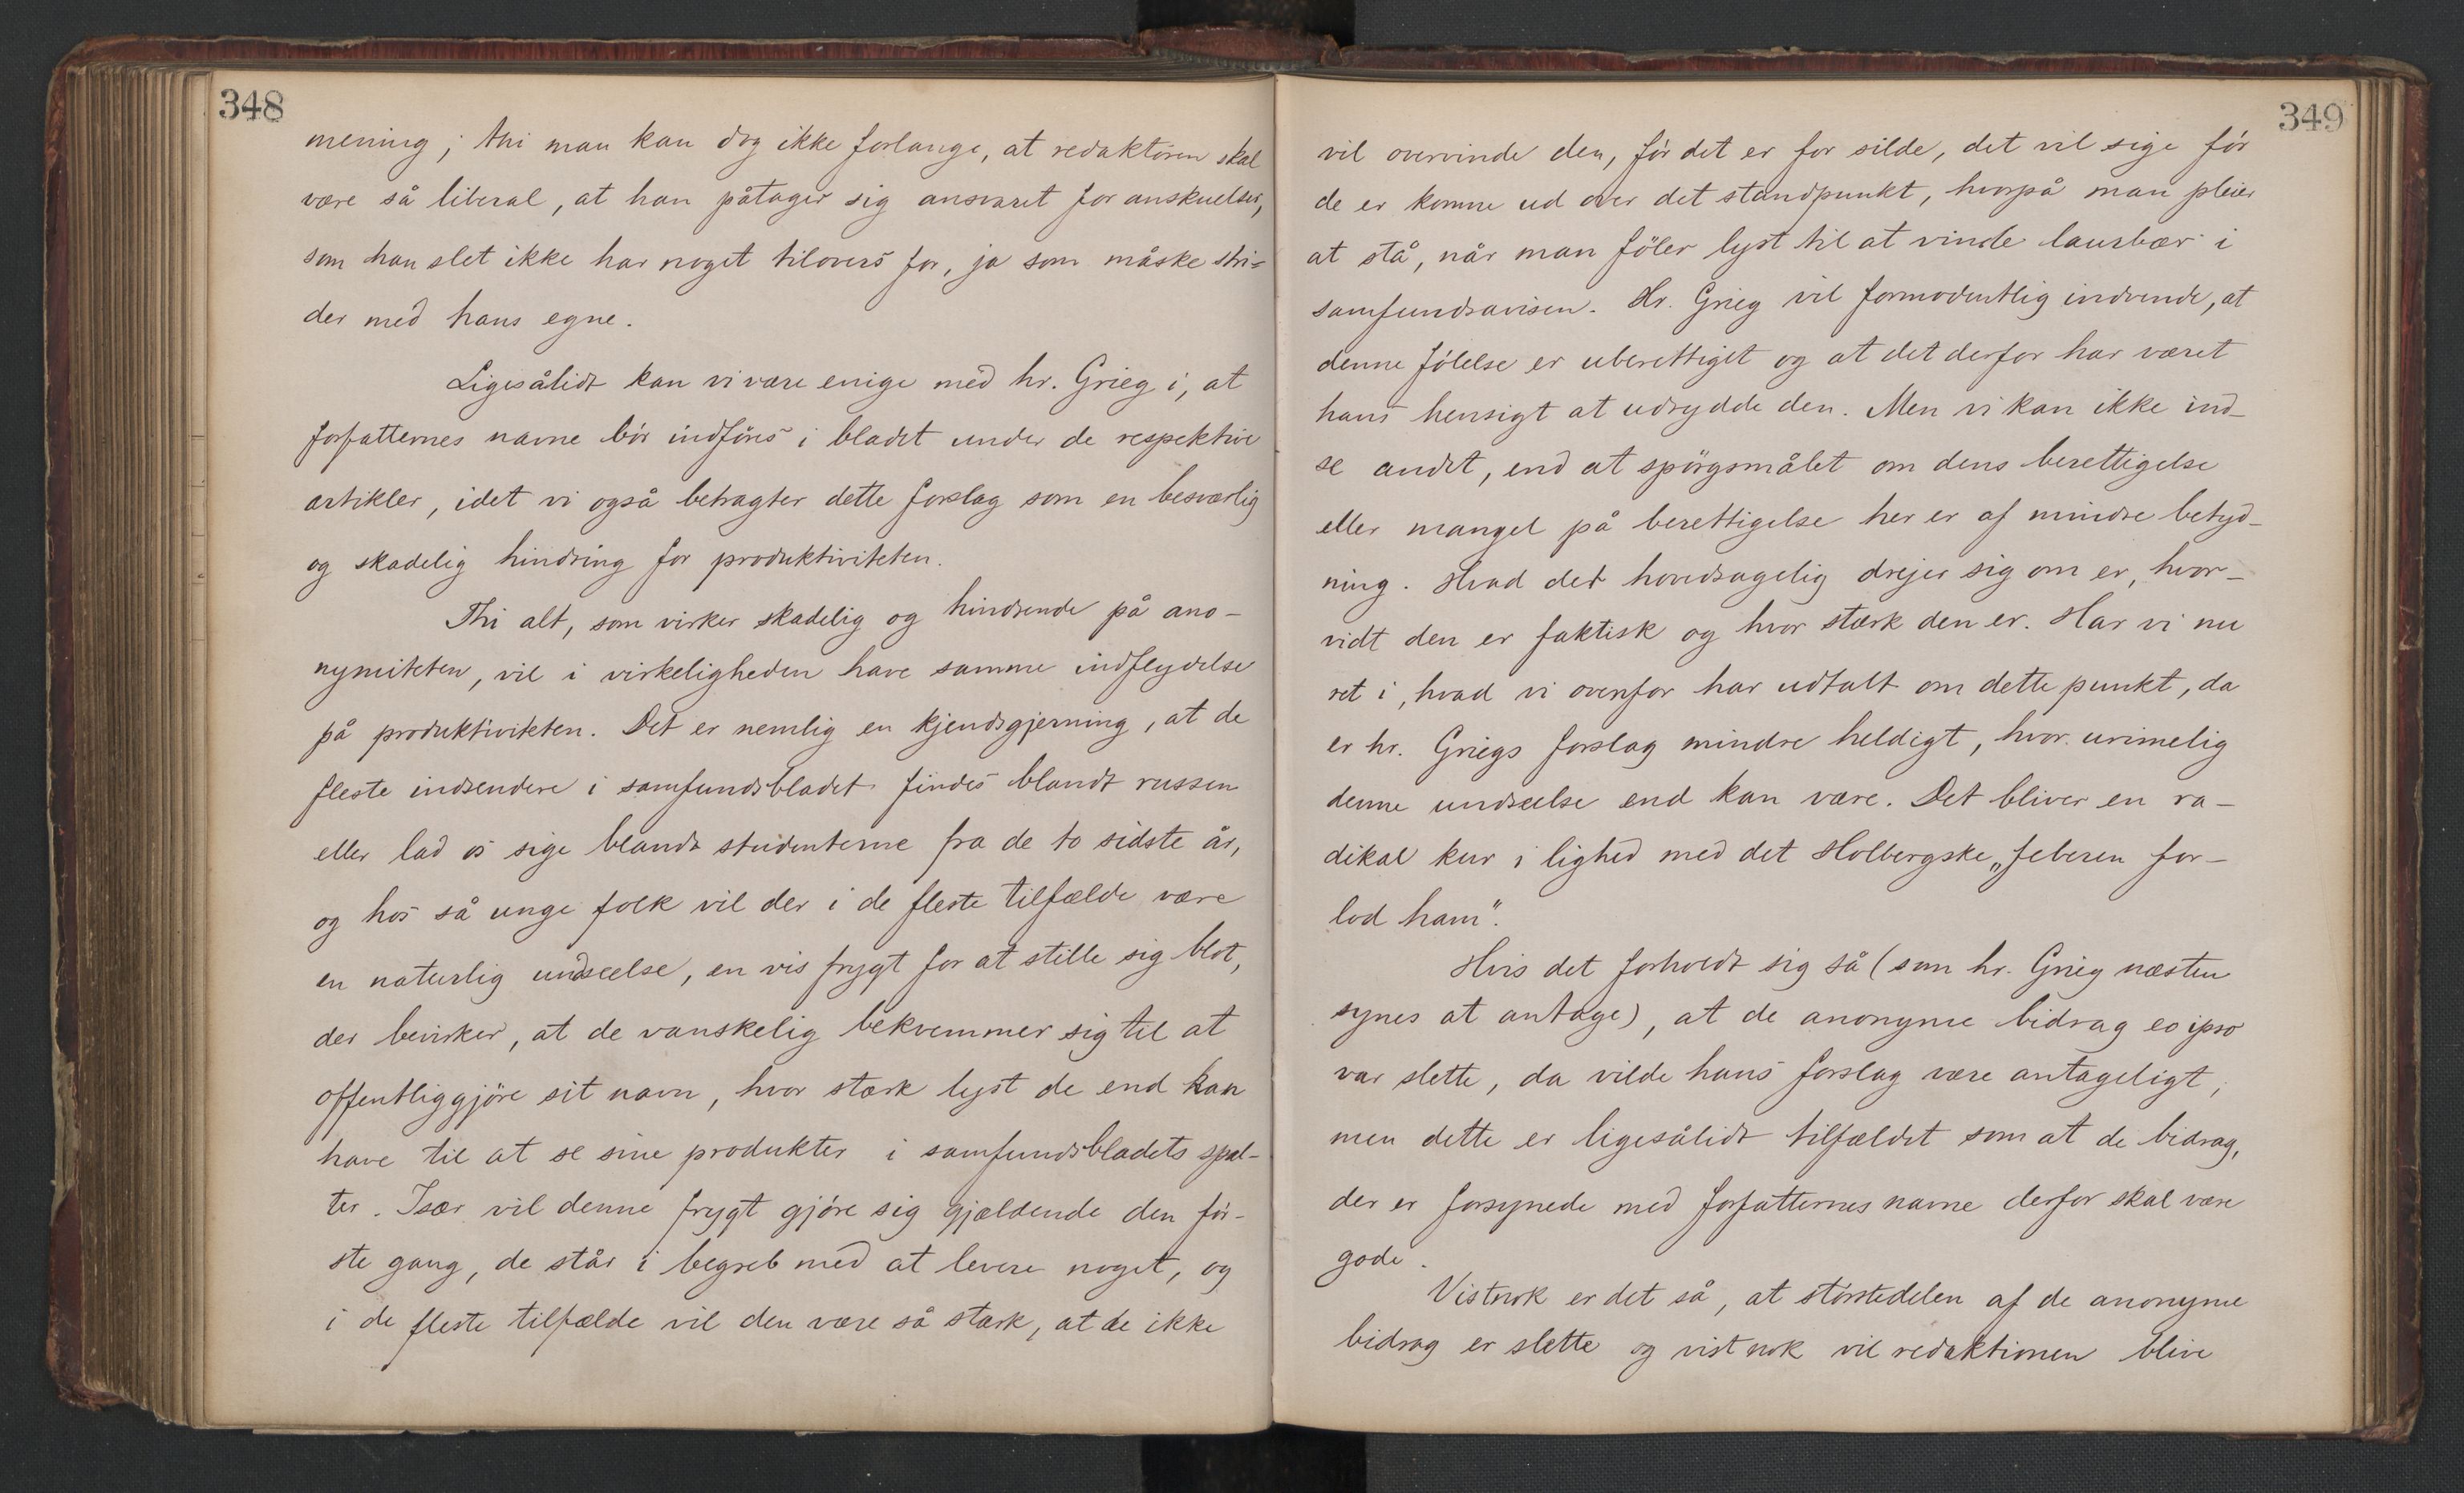 348
mening; thi man kan dog ikke forlange, at redaktören skal
være så liberal, at han påtager sig ansvaret for anskuelser,
som han slet ikke har noget tilovers for, ja som måske stri=
der med hans egne.
Ligesålidt kan vi være enige med hr. Grieg i, at
forfatternes navne bör indföres i bladet under de respektive
artikler, idet vi også betragter dette forslag som en besværlig
og skadelig hindring for produktiviteten.
Thi alt, som virker skadelig og hindrende på ano-
nymiteten, vil i virkeligheden have samme indflydelse
på produktiviteten. Det er nemlig en kjendsgjerning, at de
fleste indsendere i samfundsbladet findes blandt russen
eller lad os sige blandt studenterne fra de to sidste år,
og hos så unge folk vil der i de fleste tilfælde være
en naturlig undseelse, en vis frygt for at stille sig blot,
der bevirker, at de vanskelig bekvemmer sig til at
offentliggjöre sit navn, hvor stærk lyst de end kan
have til at se sine produkter i samfundsbladets spal-
ter. Især vil denne frygt gjöre sig gjældende den för-
ste gang, de står i begreb med at levere noget, og
i de fleste tilfælde vil den være så stærk, at de ikke
349
vil overvinde den, för det er for silde, det vil sige för
de er komne ud over det standpunkt, hvorpå man pleier
at stå, når man föler lyst til at vinde laurbær i
samfundsavisen. Hr. Grieg vil formodentlig indvende, at
denne fölelse er uberettiget og at det derfor har været
hans hensigt at udrydde den. Men vi kan ikke ind-
se andet, end at spörgsmålet om dens berettigelse
eller mangel på berettigelse her er af mindre betyd-
ning. Hvad det hovedsagelig drejer sig om er, hvor-
vidt den er faktisk og hvor stærk den er. Har vi nu
ret i, hvad vi ovenfor har udtalt om dette punkt, da
er hr. Griegs forslag mindre heldigt, hvor urimelig
denne undseelse end kan være. Det bliver en ra-
dikal kur i lighed med det Holbergske „feberen for-
lod ham".
Hvis det forholdt sig så (som hr. Grieg næsten
synes at antage), at de anonyme bidrag eo ipso
var slette, da vilde hans forslag være antageligt;
men dette er ligesålidt tilfældet som at de bidrag,
der er forsynede med forfatternes navne derfor skal være
gode.
Vistnok er det så, at störstedelen af de anonyme
bidrag er slette og vistnok vil redaktionen blive